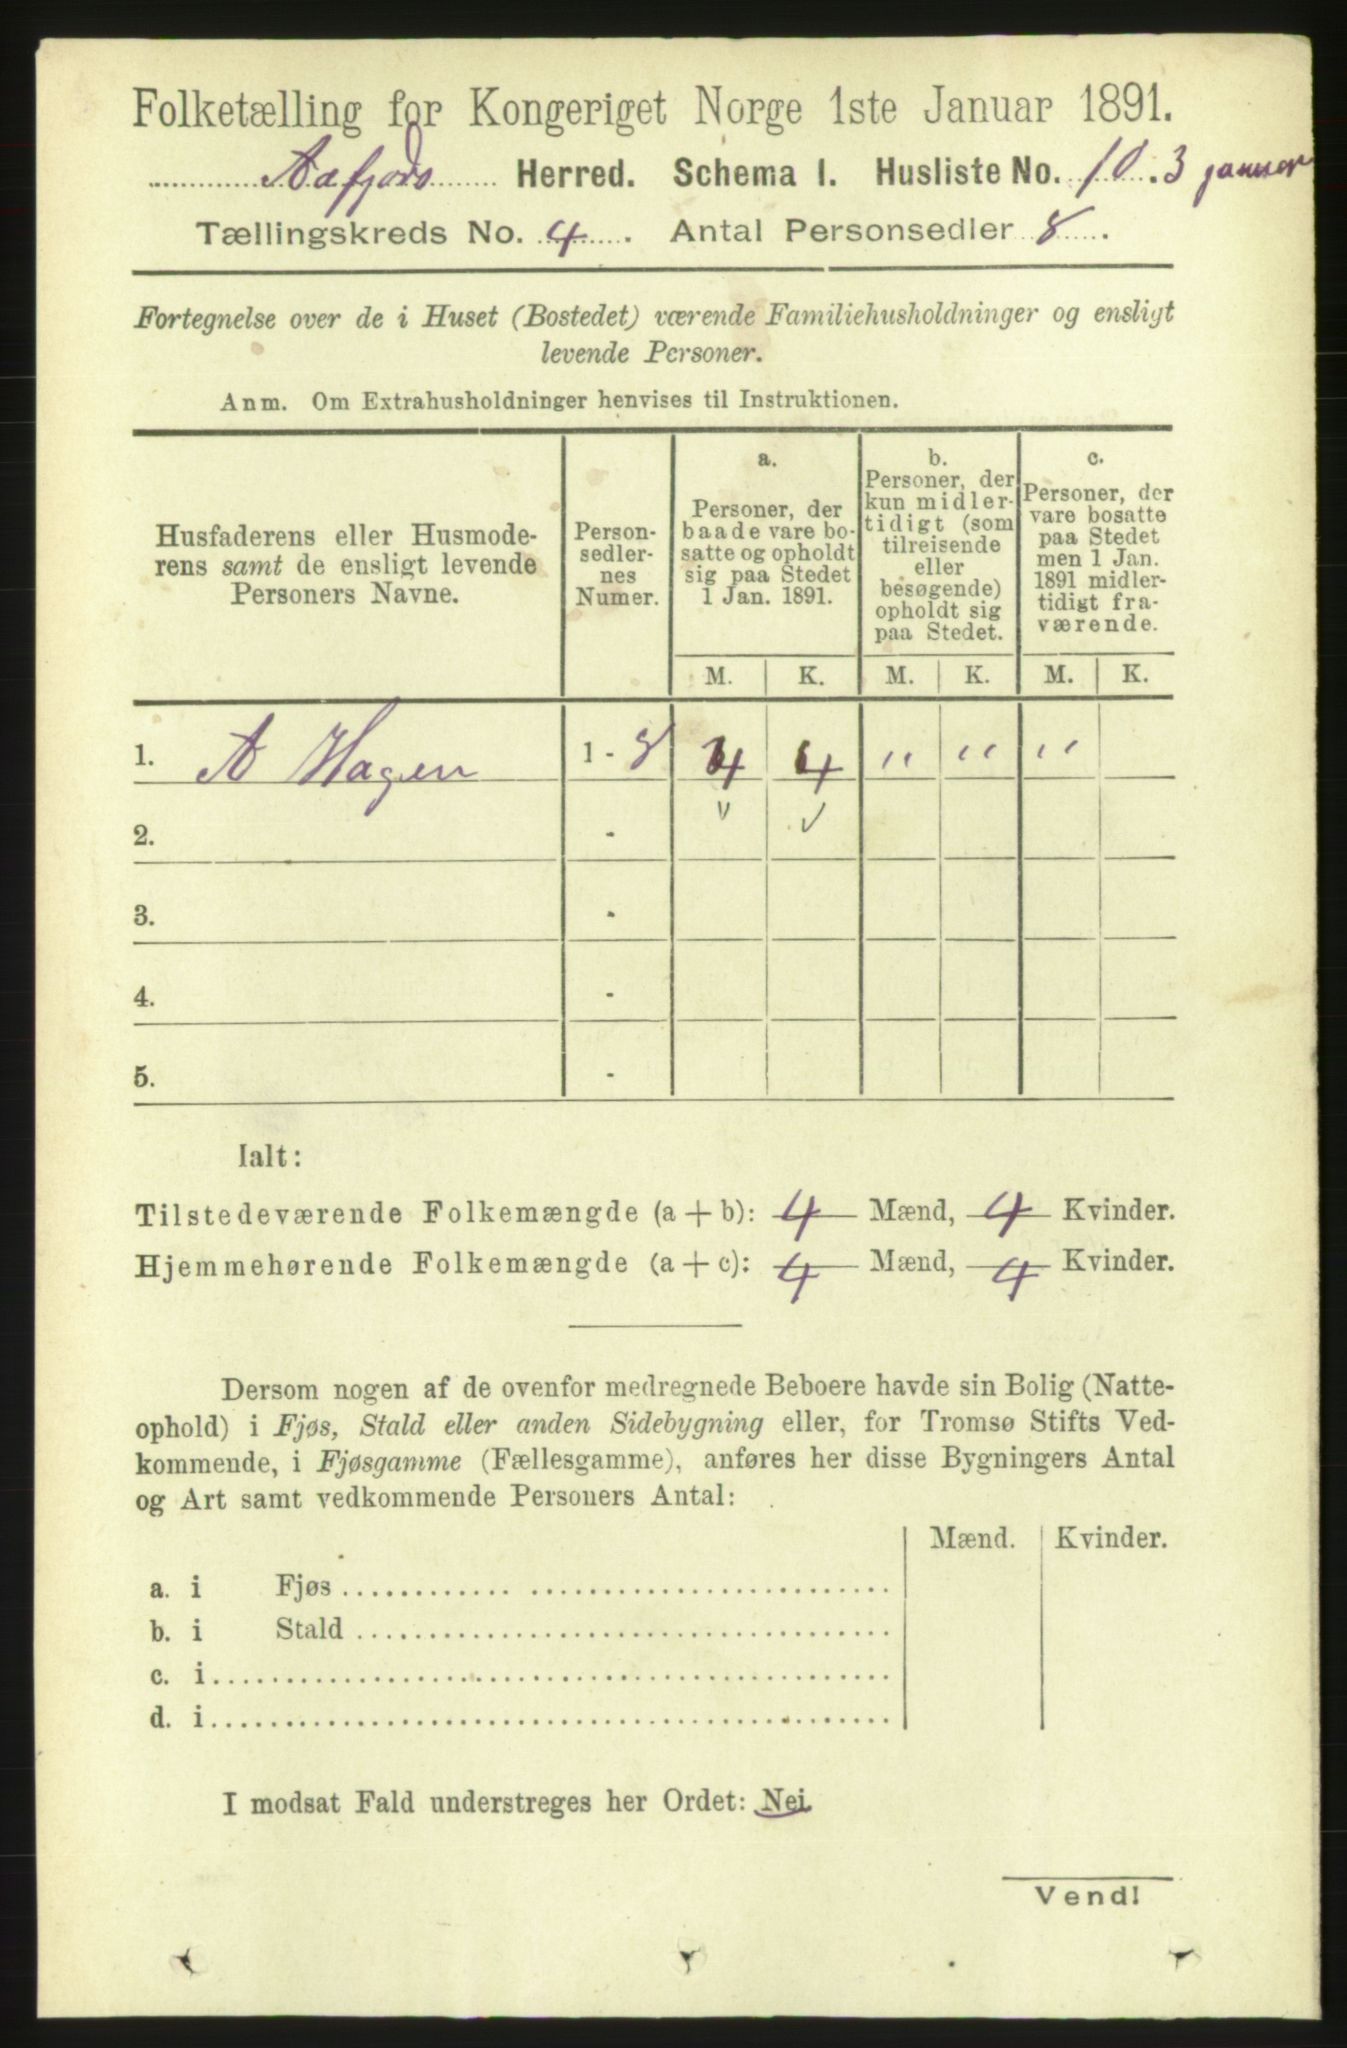 Folketælling for Kongeriget Norge 1ste Januar 1891.
Aafjords Herred. Schema I. Husliste No. 10. 3 januar
Tællingskreds No. 4. Antal Personsedler 8.
Fortegnelse over de i Huset (Bostedet) værende Familiehusholdninger og ensligt
levende Personer.
Anm. Om Extrahusholdninger henvises til Instruktionen.
Husfaderens eller Husmode-
rens samt de ensligt levende
Personers Navne.
Person-
sedler-
nes
Numer.
a.
Personer, der
baade vare bo-
satte og opholdt
sig paa Stedet
1 Jan. 1891.
b.
Personer, der
kun midler-
tidigt (som
tilreisende
eller
besøgende)
opholdt sig
paa Stedet.
c.
Personer, der
vare bosatte
paa Stedet
men 1 Jan.
1891 midler-
tidigt fra-
værende.
M. K. M. K. M. K.
1. A Hagen 1 - 8 4 4 " " "
2. -
3. -
4. -
5. -
Ialt:
Tilstedeværende Folkemængde (a + b): 4 Mænd, 4 Kvinder.
Hjemmehørende Folkemængde (a + c): 4 Mænd, 4 Kvinder.
Dersom nogen af de ovenfor medregnede Beboere havde sin Bolig (Natte-
ophold) i Fjøs, Stald eller anden Sidebygning eller, for Tromsø Stifts Ved-
kommende, i Fjøsgamme (Fællesgamme), anføres her disse Bygningers Antal
og Art samt vedkommende Personers Antal:
Mænd. Kvinder.
a. i Fjøs
b. i Stald
c. i
d. i
I modsat Fald understreges her Ordet: Nei.
Vend!